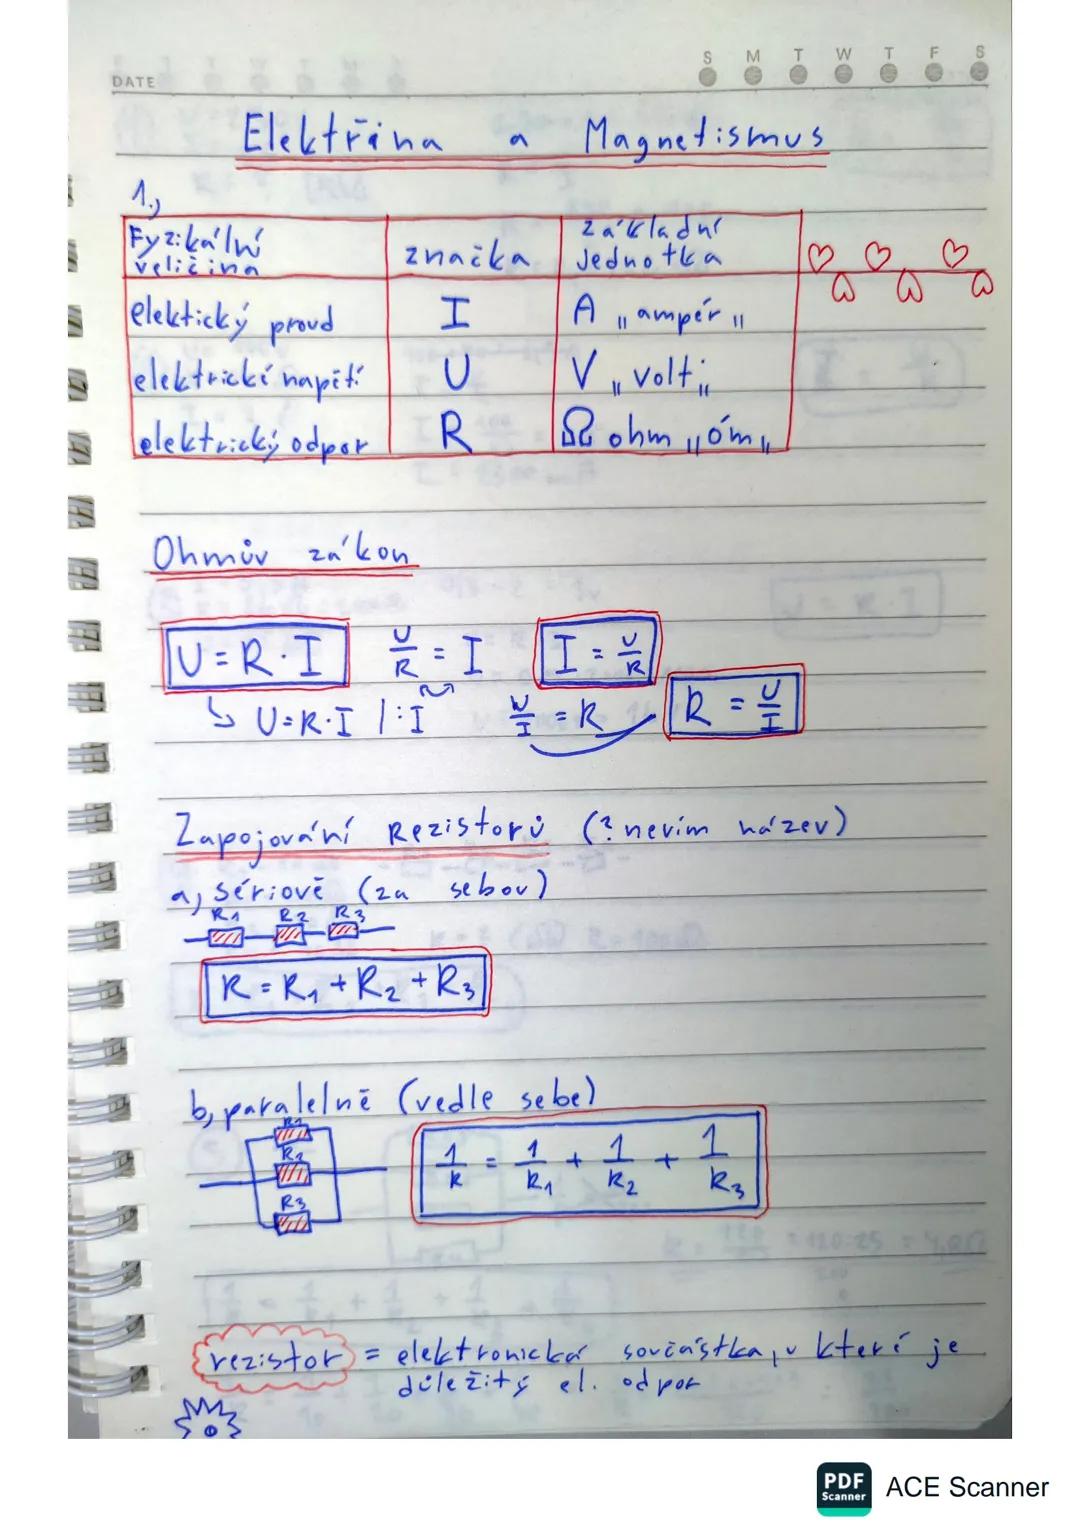 DATE
S M T W T F S
Elektřina a Magnetismus
1.,
Fyzikální veličina značka základní jednotka
elektický proud I A „ampér"
elektrické napětí U V „volt"
elektrický odpor R Ω ohm „óm"
Ohmův zákon
U = R · I U/R = I I = U/R
↳ U = R · I / : I U/I = R R = U/I
Zapojování Rezistorů (? nevím název)
a, sériově (za sebou)
R1 R2 R3
R = R1 + R2 + R3
b, paralelně (vedle sebe)
R1
R2
R3
1/R = 1/R1 + 1/R2 + 1/R3
rezistor = elektronická součástka, u které je
důležitý el. odpor
PDF Scanner ACE Scanner